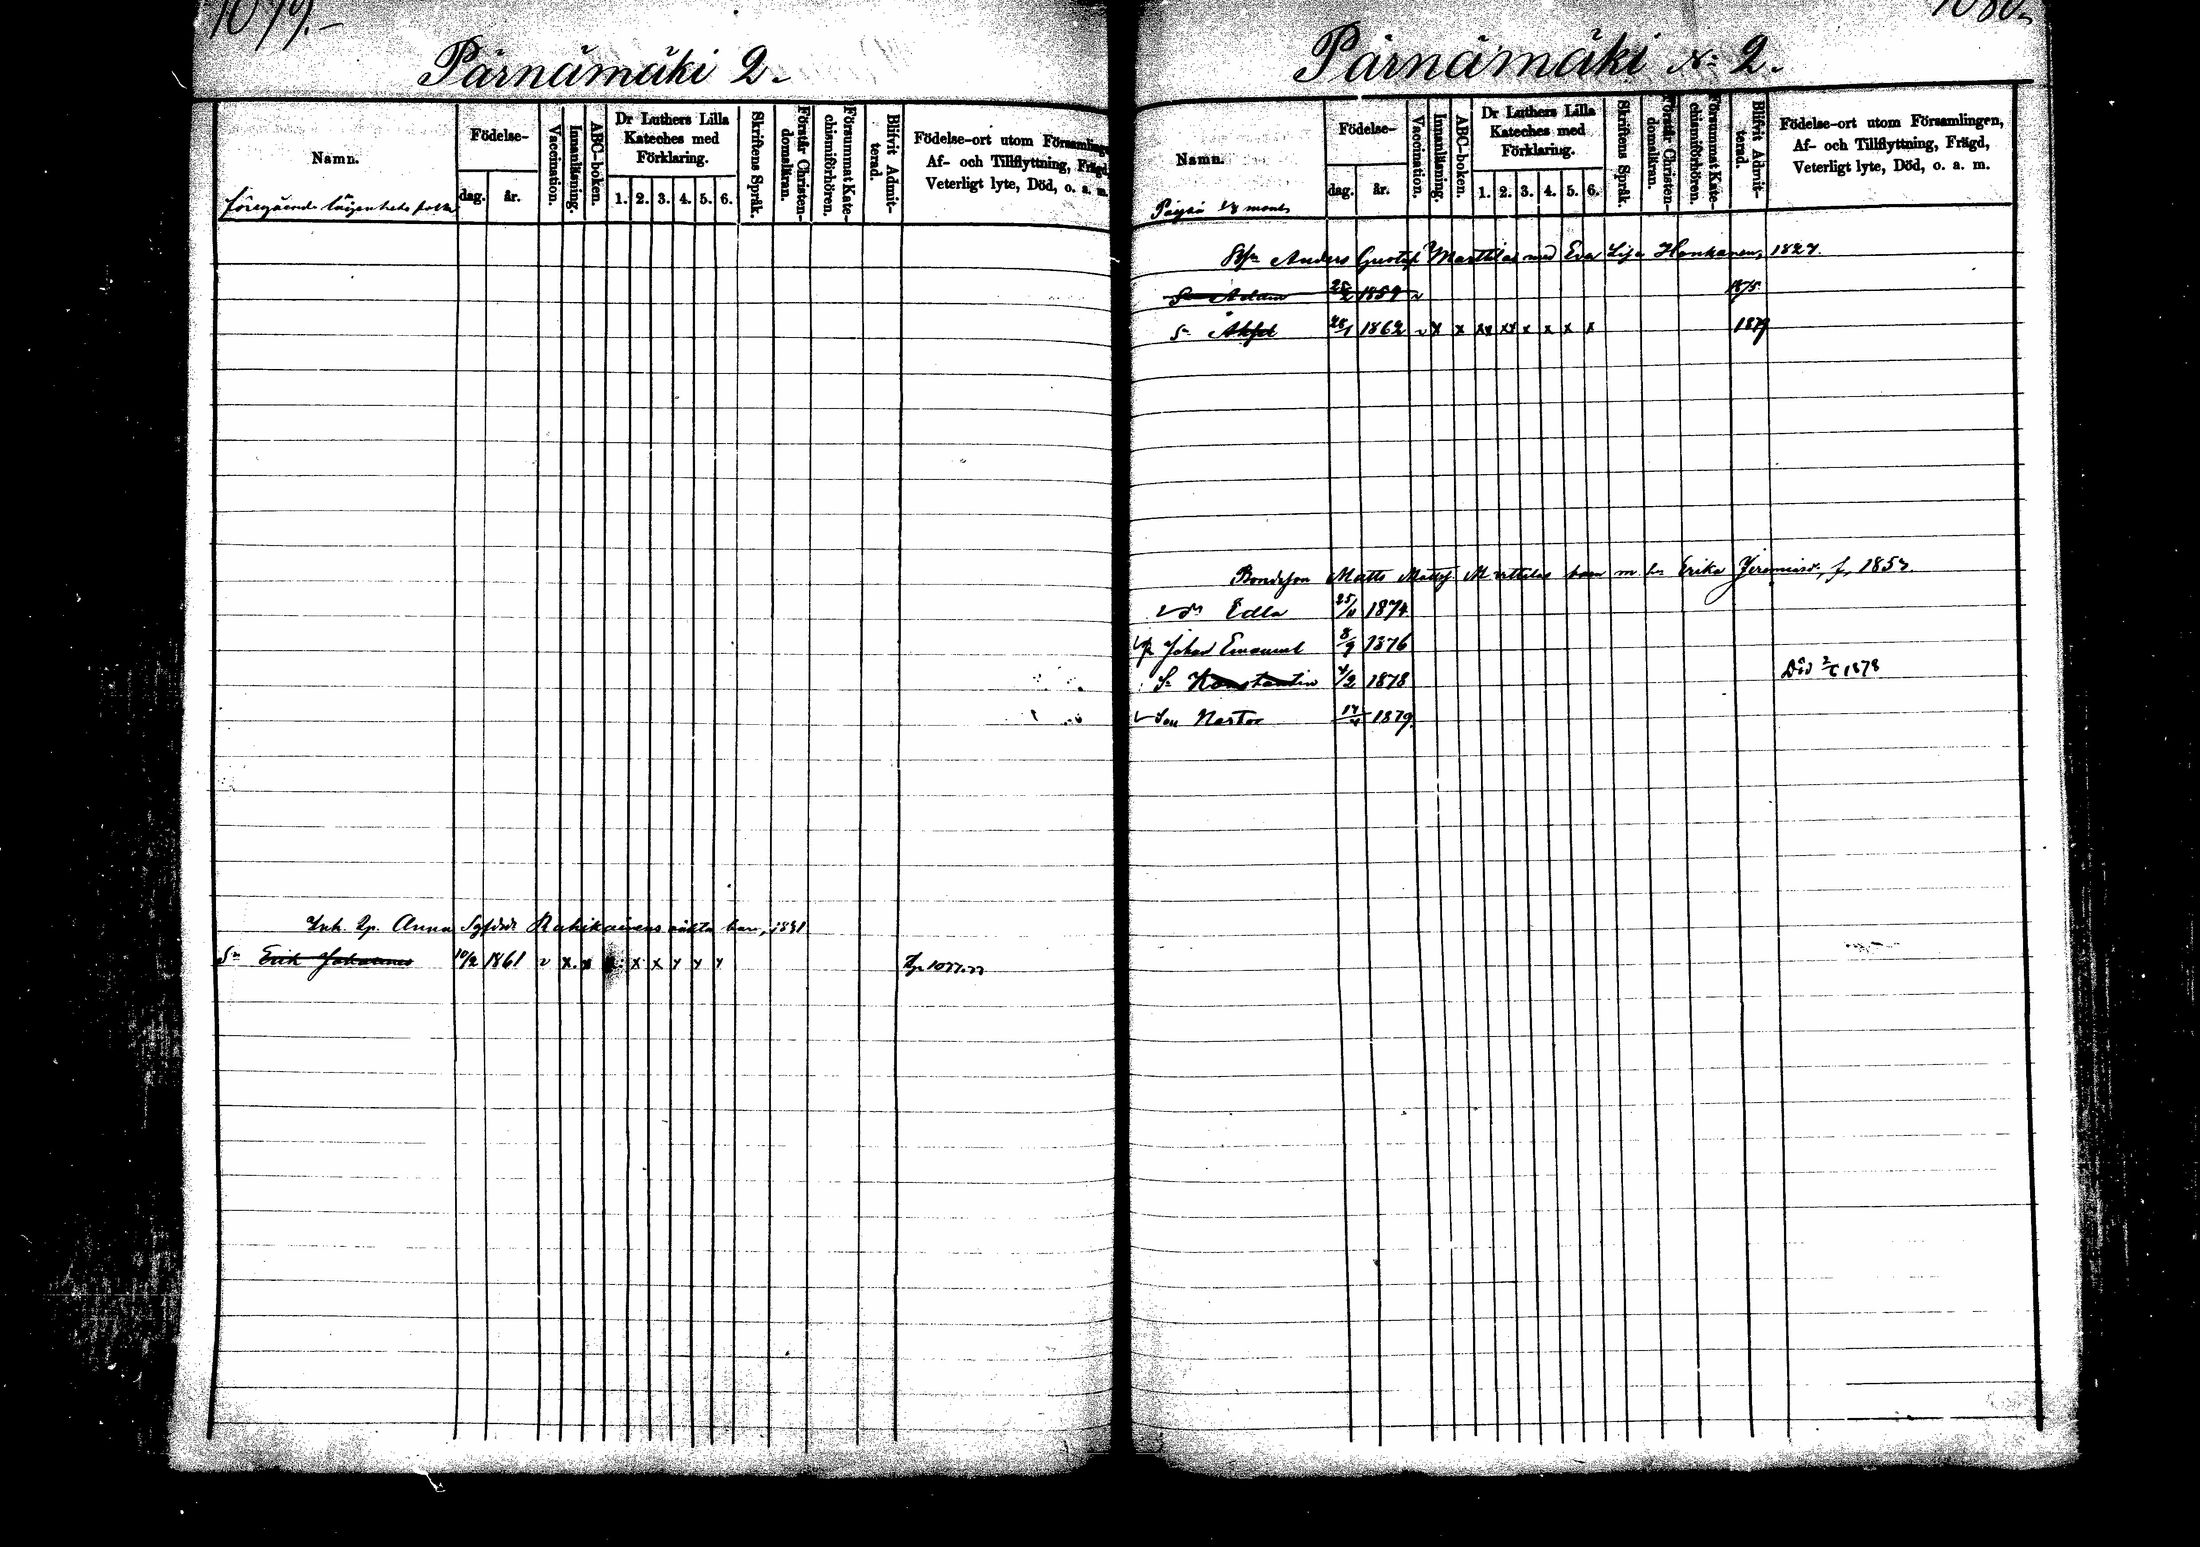 1079.
Pärnämäki 2.
Namn.
Födelse-
dag. år.
Vaccination.
Innanläsning.
ABC-boken.
Dr Luthers Lilla
Kateches med
Förklaring.
1. 2. 3. 4. 5. 6.
Skriftens Språk.
Förstår Christen-
domsläran.
Försummat Kate-
chismiförhören.
Blifvit Admit-
terad.
Födelse-ort utom Församlingen,
Af- och Tillflyttning, Frägd,
Veterligt lyte, Död, o. a. m.
föregående lägenhets folk
Inh. Anna Rahikainens barn, 1831
Sn Erik Johannes 10/2 1861 v x x x x y y y
1080
Pärnämäki N: 2.
Namn.
Födelse-
dag. år.
Vaccination.
Innanläsning.
ABC-boken.
Dr Luthers Lilla
Kateches med
Förklaring.
1. 2. 3. 4. 5. 6.
Skriftens Språk.
Förstår Christen-
domsläran.
Försummat Kate-
chismiförhören.
Blifvit Admit-
terad.
Födelse-ort utom Församlingen,
Af- och Tillflyttning, Frägd,
Veterligt lyte, Död, o. a. m.
Anders Gustaf Marttilas med Eva Lisa Honkanen, 1827.
Sn Adam 1859 v 1875
Sn 1862 v x x xx xx x x x x 1879
Bondeson Matts Mattss. Marttilas barn m Erika Jeremiasd., f. 1853.
Edla 25/11 1874
Johan Emanuel 8/9 1876
Sn Konstantin 4/2 1878 Död 1878
Son Nestor 1879.